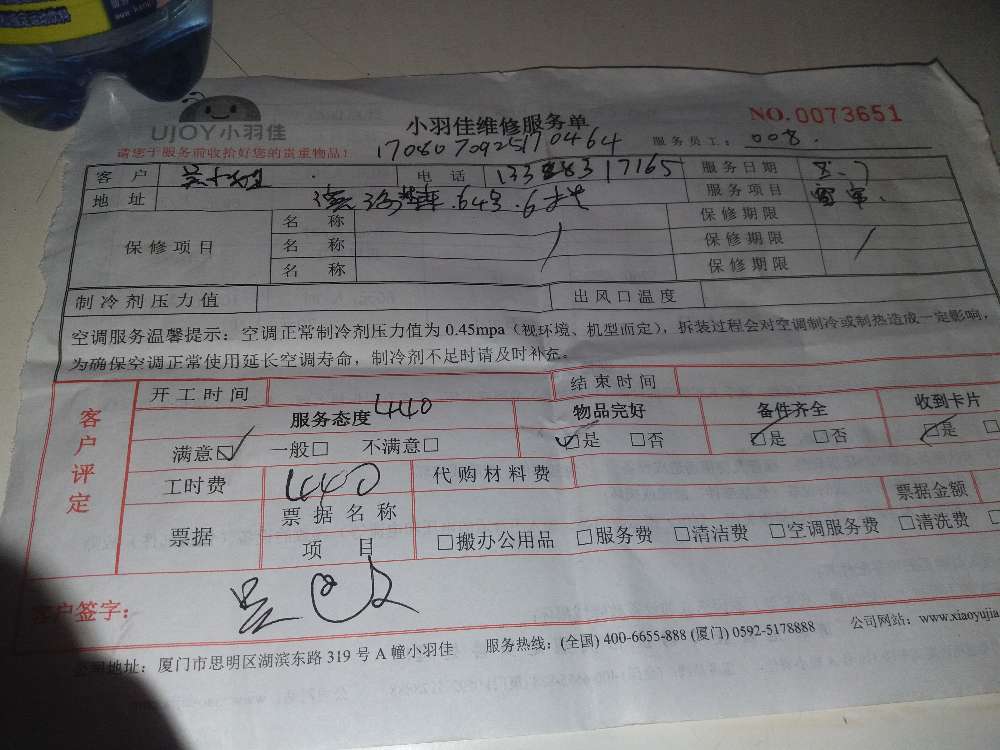 UJOY小羽佳
小羽佳维修服务单
NO.0073651
请您于服务前收拾好您的贵重物品！
1708070925170464
服务员工： 008.
客 户
电 话
服务日期 8.7
地 址 643.6
服务项目
保修项目
名 称 / 保修期限 /
名 称 保修期限
名 称 保修期限
制冷剂压力值 出风口温度
空调服务温馨提示：空调正常制冷剂压力值为 0.45mpa（视环境、机型而定），拆装过程会对空调制冷或制热造成一定影响，
为确保空调正常使用延长空调寿命，制冷剂不足时请及时补充。
客户评定
开工时间 结束时间
服务态度 440 物品完好 备件齐全 收到卡片
满意☑ 一般□ 不满意□ ☑是 □否 ☑是 □否 ☑是 □
工时费 440 代购材料费
票据 票据名称 票据金额
项 目 □搬办公用品 □服务费 □清洁费 □空调服务费 □清洗费
客户签字：
公司地址：厦门市思明区湖滨东路 319 号 A 幢小羽佳 服务热线：(全国) 400-6655-888 (厦门) 0592-5178888 公司网站：www.xiaoyujia